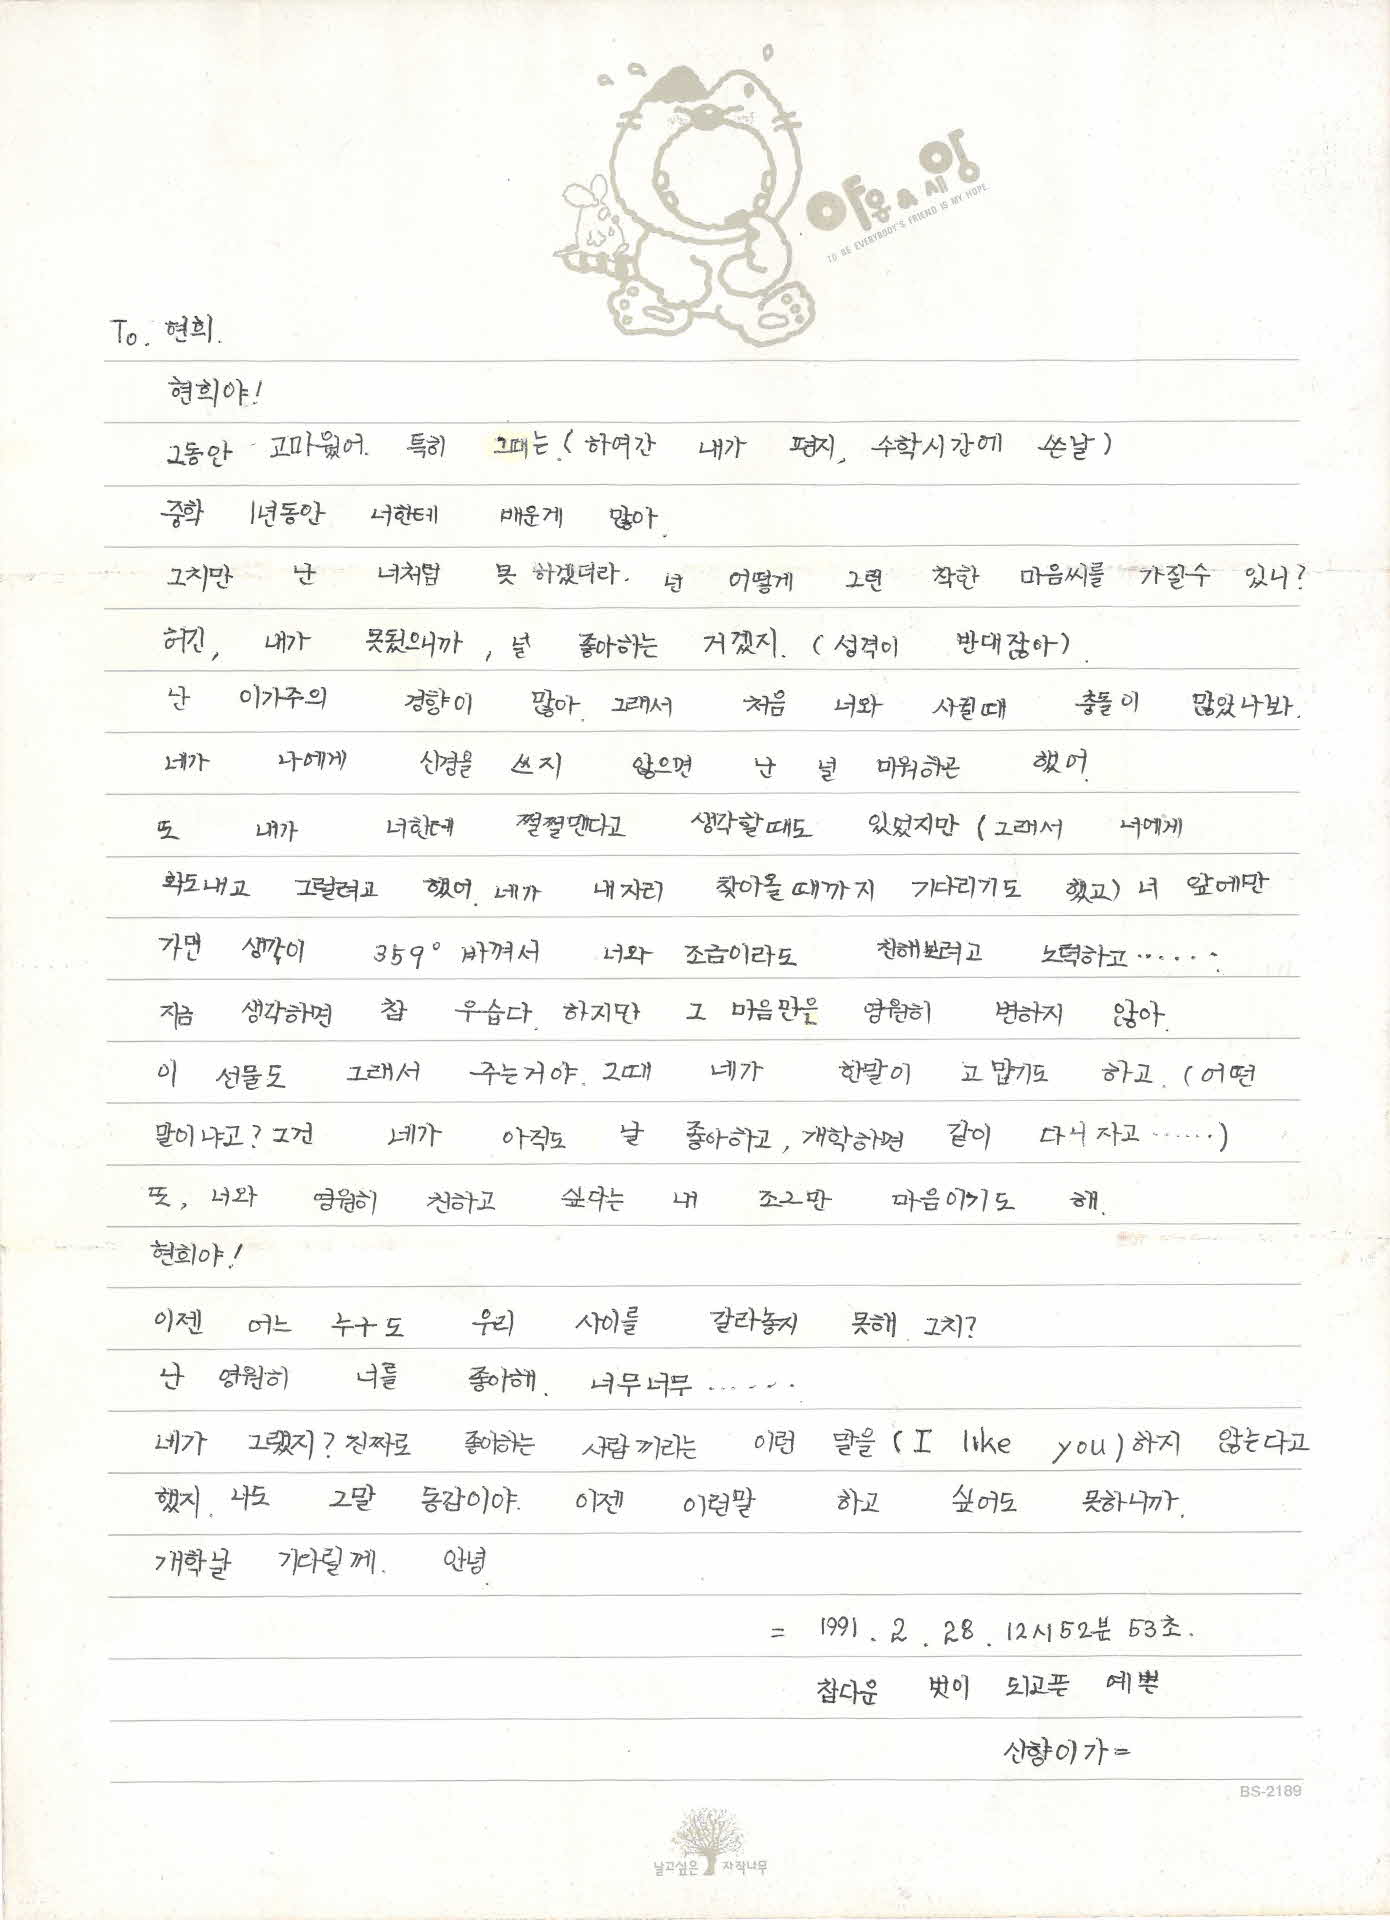 야옹이와 세 양
TO BE EVERYBODY'S FRIEND IS MY HOPE
To. 현희.
현희야!
그동안 고마웠어. 특히 그때는.(하여간 내가 편지, 수학시간에 쓴날)
중학 1년동안 너한테 배운게 많아.
그치만 난 너처럼 못 하겠더라. 넌 어떻게 그런 착한 마음씨를 가질수 있니?
허긴, 내가 못됬으니까, 널 좋아하는 거겠지. (성격이 반대잖아).
난 이가주의 경향이 많아. 그래서 처음 너와 사귈때 충돌이 많았나봐.
네가 나에게 신경을 쓰지 않으면 난 널 미워하곤 했어.
또 내가 너한테 쩔쩔맨다고 생각할때도 있었지만 (그래서 너에게
화도내고 그럴려고 했어. 네가 내자리 찾아올때까지 기다리기도 했고) 너 앞에만
가면 생각이 359° 바껴서 너와 조금이라도 친해보려고 노력하고‥‥‥.
지금 생각하면 참 우습다. 하지만 그 마음만은 영원히 변하지 않아.
이 선물도 그래서 주는거야. 그때 네가 한말이 고맙기도 하고. (어떤
말이냐고? 그건 네가 아직도 날 좋아하고, 개학하면 같이 다니자고‥‥‥)
또, 너와 영원히 친하고 싶다는 내 조그만 마음이기도 해.
현희야!
이젠 어느 누구도 우리 사이를 갈라놓지 못해. 그치?
난 영원히 너를 좋아해. 너무너무‥‥‥.
네가 그랬지? 진짜로 좋아하는 사람끼라는 이런 말을 (I like you)하지 않는다고
했지. 나도 그말 동감이야. 이젠 이런말 하고 싶어도 못하니까.
개학날 기다릴께. 안녕.
= 1991. 2. 28. 12시52분 53초.
참다운 벗이 되고픈 예쁜
산향이가=
BS-2189
날고싶은 자작나무